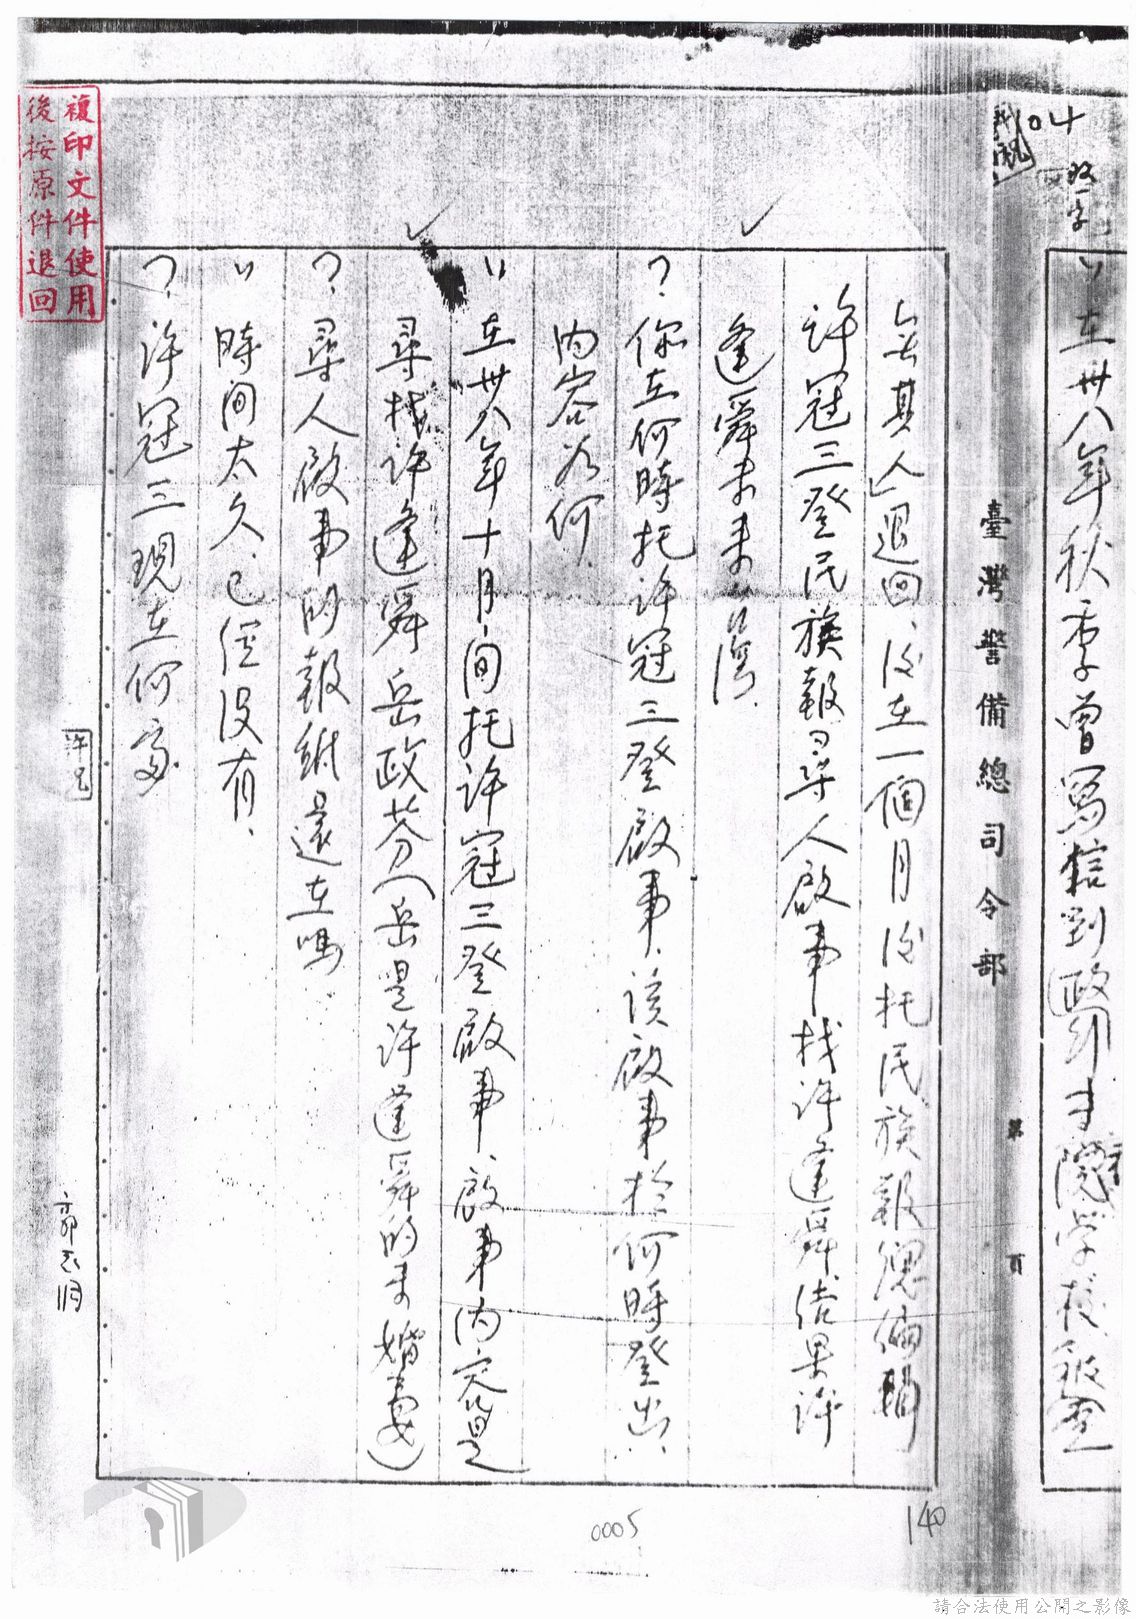 04
改一字
〃、在卅八年秋季曾寫信到醫學院學校被查
臺灣警備總司令部
第 頁
無其人」退回、後在一個月後托民族報總編輯
許冠三登民族報尋人啟事找許逢舜結果許
逢舜未來台灣、
？、你在何時托許冠三登啟事、該啟事於何時登出、
內容為何、
〃在卅八年十月间托許冠三登啟事、啟事內容是
尋找許逢舜岳政芬（岳是許逢舜的未婚妻）
？、尋人啟事的報紙還在嗎
〃時间太久、已經沒有、
？、許冠三現在何處
複印文件使用
後按原件退回
0005
140
請合法使用公開之影像